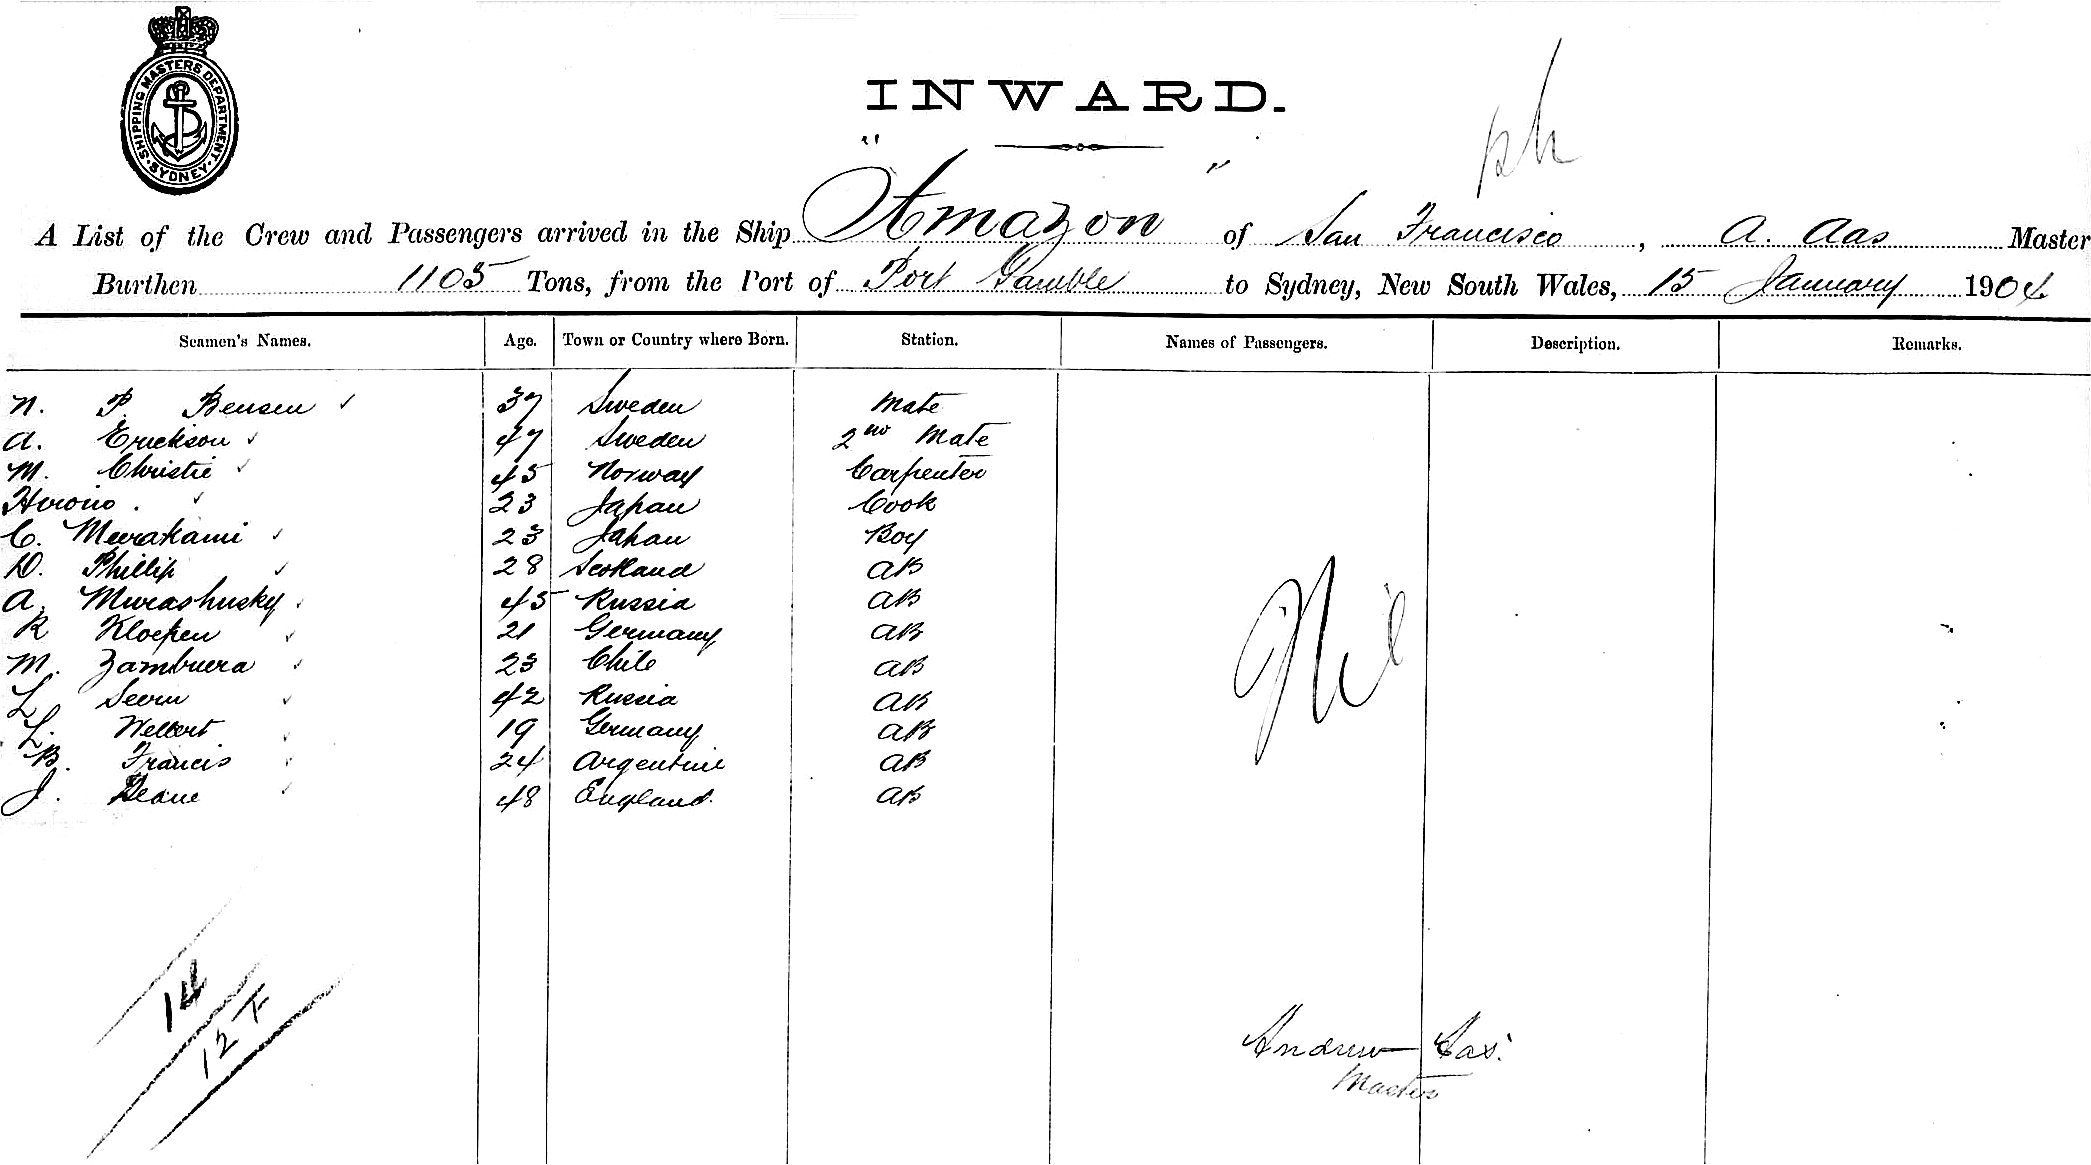 SHIPPING MASTERS DEPARTMENT. SYDNEY.
INWARD.
A List of the Crew and Passengers arrived in the Ship "Amazon" of San Francisco, A. Aas Master
Burthen 1105 Tons, from the Port of Port Gamble to Sydney, New South Wales, 15 January 1904
Seamen's Names. Age. Town or Country where Born. Station. Names of Passengers. Description. Remarks.
N. P. Bensen 37 Sweden Mate
A. Erickson 47 Sweden 2nd Mate
M. Christie 45 Norway Carpenter
23 Japan Cook
C. Murakami 23 Japan Boy
D. Phillip 28 Scotland AB
A. Murashusky 45 Russia AB
R Kloepen 21 Germany AB
M. Zambuera 23 Chile AB
L. 42 Russia AB
L. Wellert 19 Germany AB
B. Francis 24 Argentine AB
J. Deane 48 England. AB
Nil
14
12 F
Andrew Aas.
Master